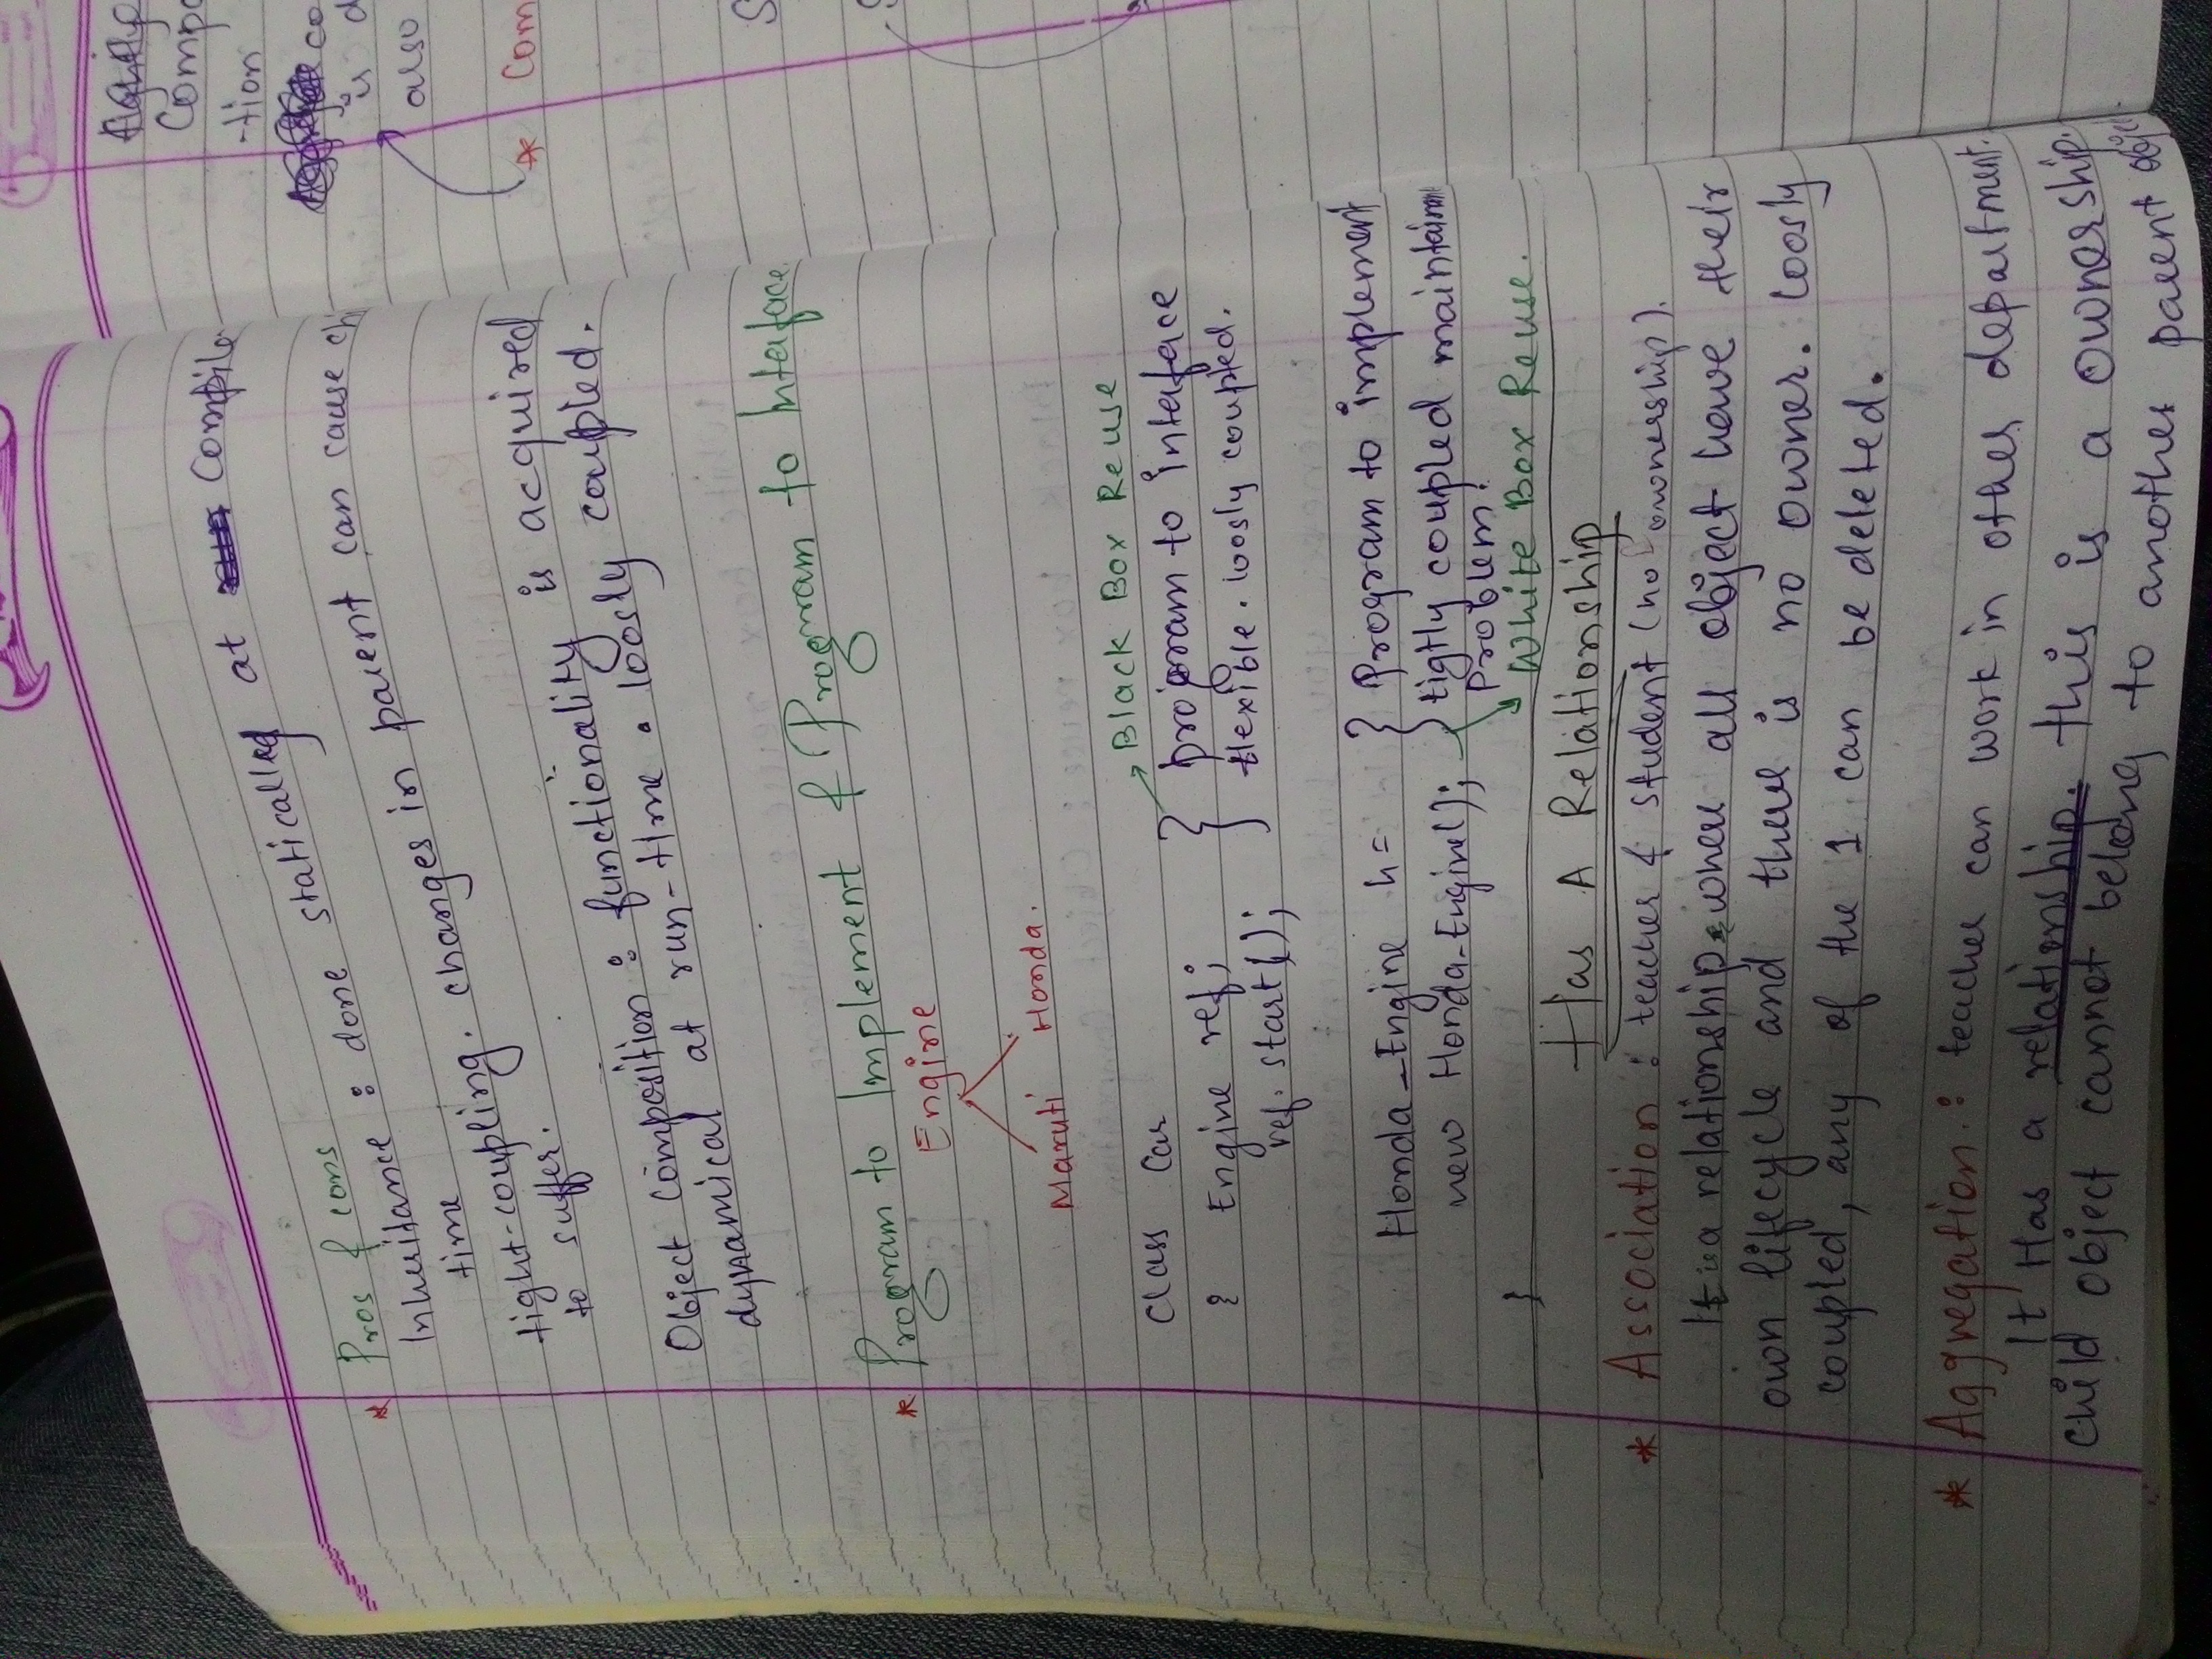 * Pros & cons
Inheritance : done statically at compile
time
tight-coupling. changes in parent can cause
to suffer.
Object Composition : functionality is acquired
dynamical at run-time. loosly coupled.
* Program to Implement & Program to Interface
Engine
Maruti Honda.
Black Box Reuse
class Car
{ Engine ref; } program to interface
ref. start(); flexible. loosly coupled.
Honda_Engine h = } Program to implement
new Honda-Engine(); tigtly coupled
Problem.
} White Box Reuse.
Has A Relationship
* Association : teacher & student (no ownership).
It is a relationship where all object have their
own lifecycle and there is no owner. loosly
coupled, any of the 1 can be deleted.
* Aggregation : teacher can work in other department.
It Has a relationship. this is a ownership.
child object cannot belong to another parent
-tion
is
also
*